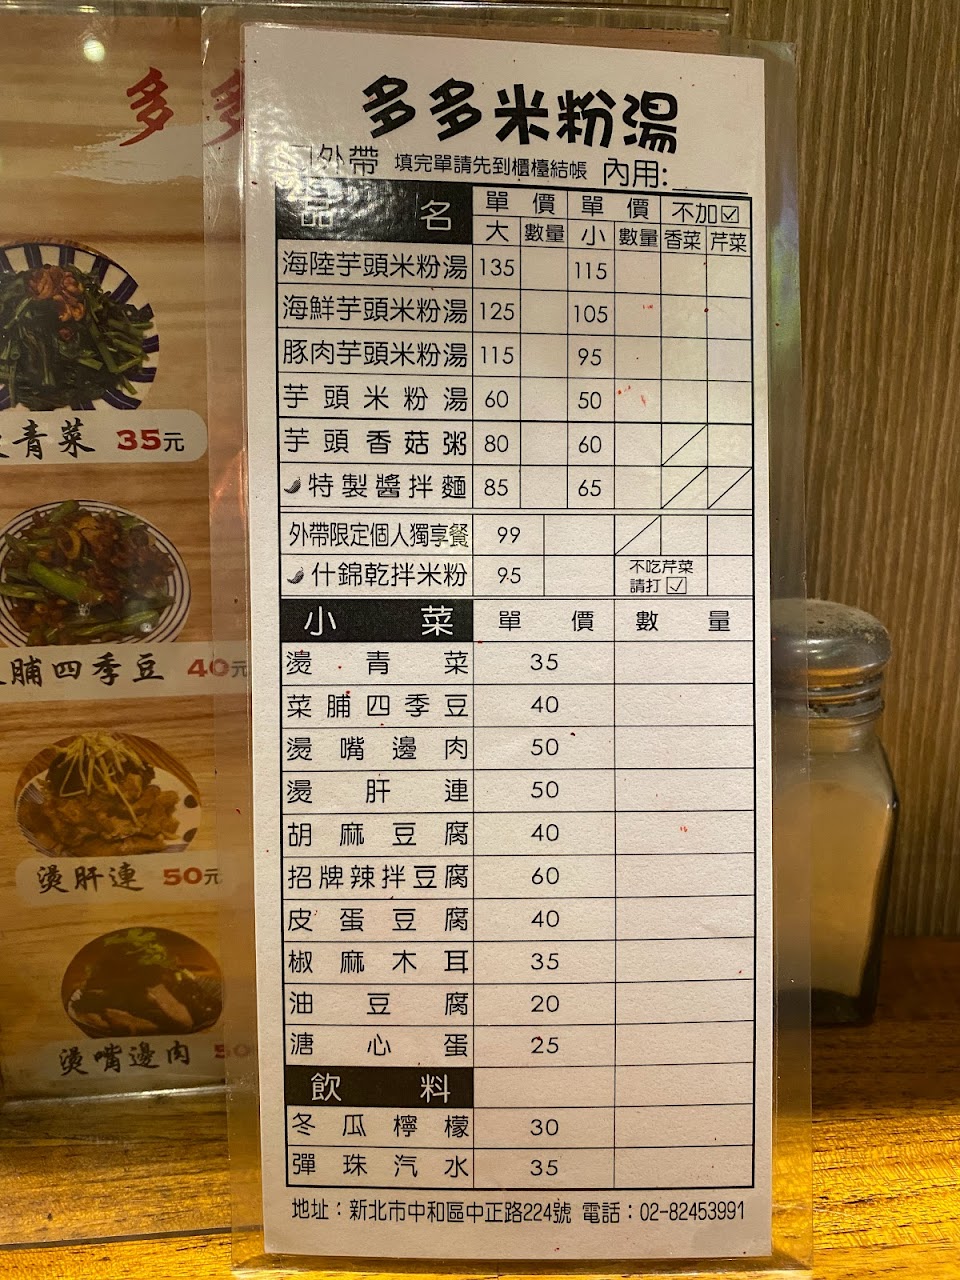 多多米粉湯
外帶 填完單請先到櫃檯結帳 內用:
品名 單價 單價 不加☑
大 數量 小 數量 香菜 芹菜
海陸芋頭米粉湯 135 115
海鮮芋頭米粉湯 125 105
豚肉芋頭米粉湯 115 95
芋頭米粉湯 60 50
芋頭香菇粥 80 60
特製醬拌麵 85 65
外帶限定個人獨享餐 99
什錦乾拌米粉 95 不吃芹菜
請打☑
小菜 單價 數量
燙青菜 35
菜脯四季豆 40
燙嘴邊肉 50
燙肝連 50
胡麻豆腐 40
招牌辣拌豆腐 60
皮蛋豆腐 40
椒麻木耳 35
油豆腐 20
溏心蛋 25
飲料
冬瓜檸檬 30
彈珠汽水 35
地址：新北市中和區中正路224號 電話：02-82453991
多多
青菜 35元
脯四季豆 40元
燙肝連 50元
燙嘴邊肉 50